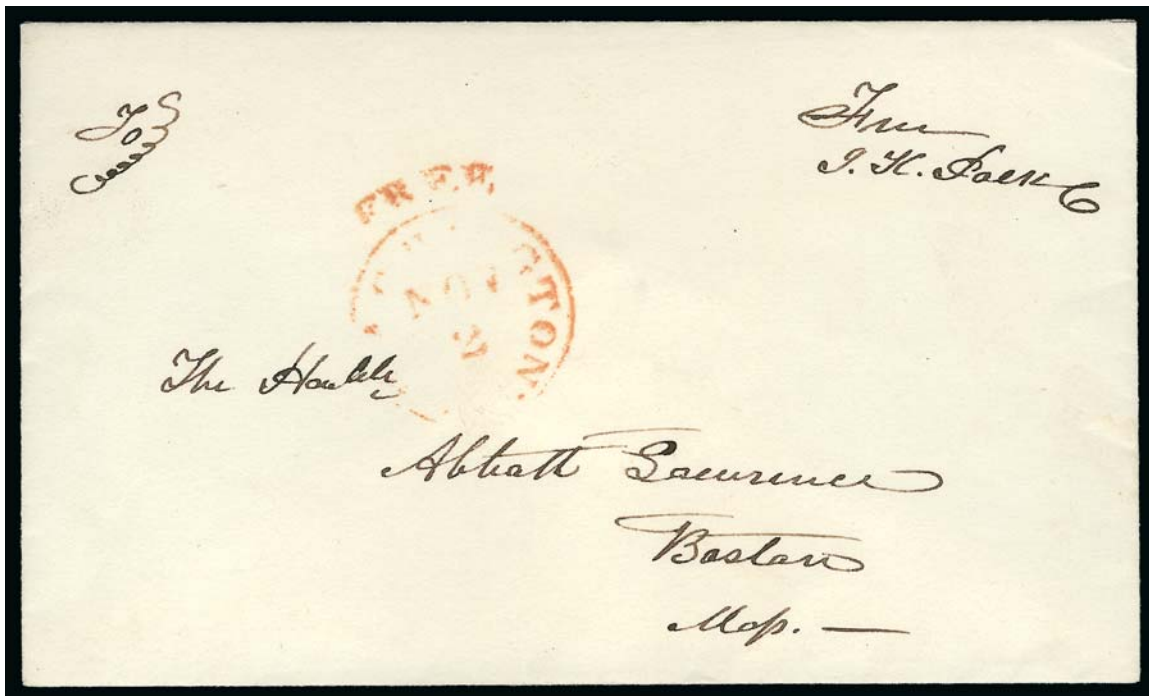 To
Free
J. K. Polk
FREE
WASHINGTON
NOV
2
The Honble
Abbott Lawrence
Boston
Mass. —